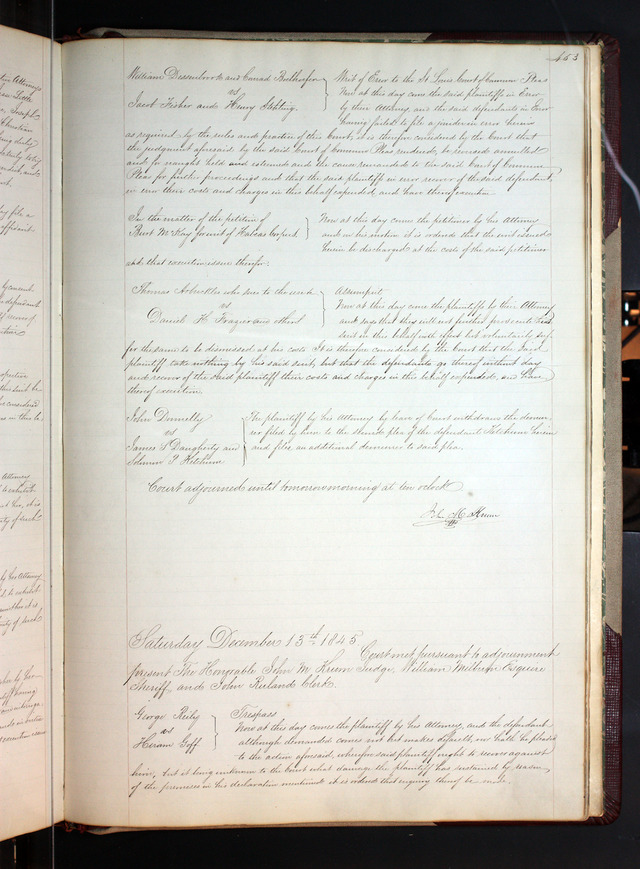 453
William Dissenbrook and Conrad
vs
Jacob Fisher and Henry
Writ of Error to the St Louis Court of Common Pleas
Now at this day come the said plaintiffs in Error
by their Attorney and the said defendants in Error
having failed to file a joinder in error herein
as required by the rules and practice of this Court, it is therefore considered by the Court that
the judgment aforesaid by the said Court of Common Pleas rendered, be reversed annulled
and for naught held and esteemed and the cause remanded to the said Court of Common
Pleas for further proceedings and that the said plaintiffs in error recover of the said defendants
in error their costs and charges in this behalf expended, and have thereof execution.
In the matter of the petition of
Burt McKay for writ of Habeas Corpus
Now at this day came the petitioner by his Attorney
and on his motion it is ordered that the writ issued
herein be discharged at the costs of the said petitioner
and that execution issue therefor.
Thomas Arbuckle who sues to the use &c
vs
Daniel H. Frazier and others
Assumpsit
Now at this day come the plaintiffs by their Attorney
and says that they will not further prosecute their
suit in this behalf with but voluntarily suf-
fer the same to be dismissed at his costs. It is therefore considered by the Court that the said
plaintiff take nothing by his said suit, but that the defendants go thereof without day
and recover of the said plaintiff their costs and charges in this behalf expended, and have
thereof execution.
John Donnelly
vs
James S Daugherty and
P. Ketchum
The plaintiff by his Attorney by leave of Court withdraws the demur-
rer filed by him to the plea of the defendant Ketchum herein
and files an additional demurrer to said plea.
Court adjourned until tomorrow morning at ten oclock
John M. Krum
Saturday December 13th 1845
Court met pursuant to adjournment
present The Honorable John M Krum Judge, William Milburn Esquire
Sheriff, and John Ruland Clerk.
George Reily
vs
Hiram Goff
Trespass
Now at this day comes the plaintiff by his Attorney, and the defendant
although demanded comes not but makes default, nor hath he pleaded
to the action aforesaid, wherefore said plaintiff ought to recover against
him, but it being unknown to the Court what damage the plaintiff has sustained by reason
of the premises in his declaration mentioned it is ordered that enquiry thereof be made.